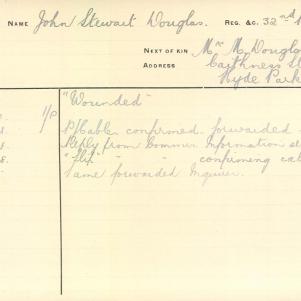 NAME John Stewart Douglas. REG. &C. 32nd
NEXT OF KIN Mr M. Douglas
ADDRESS Caithness St
Hyde Park
1/P "Wounded"
confirmed. forwarded
Reply from Commr. Information
" " confirming
Same forwarded Inquirer.